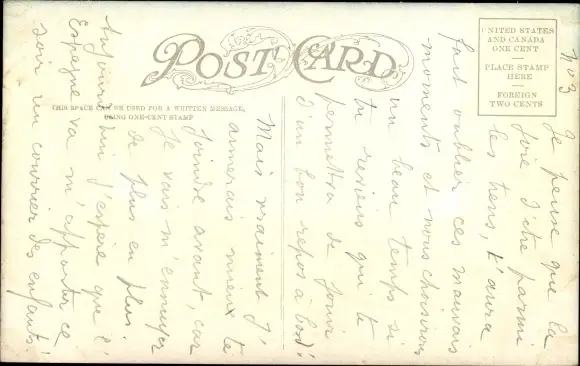 POST CARD
THIS SPACE CAN BE USED FOR A WRITTEN MESSAGE,
USING ONE-CENT STAMP
UNITED STATES
AND CANADA
ONE CENT
PLACE STAMP
HERE
FOREIGN
TWO CENTS
No 3
Je pense que la
joie d'être parmi
les tiens, t'aura
fait oublier ces mauvais
moments et nous choisirons
un beau temps si
tu reviens qui te
permettra de jouir
d'un bon repos à bord!
Mais vraiment j'
aimerais mieux te
joindre avant, car
je vais m'ennuyer
de plus en plus.
Aujourd'hui j'espère que l'
Espagne va m'apporter ce
soir un courrier des enfants!